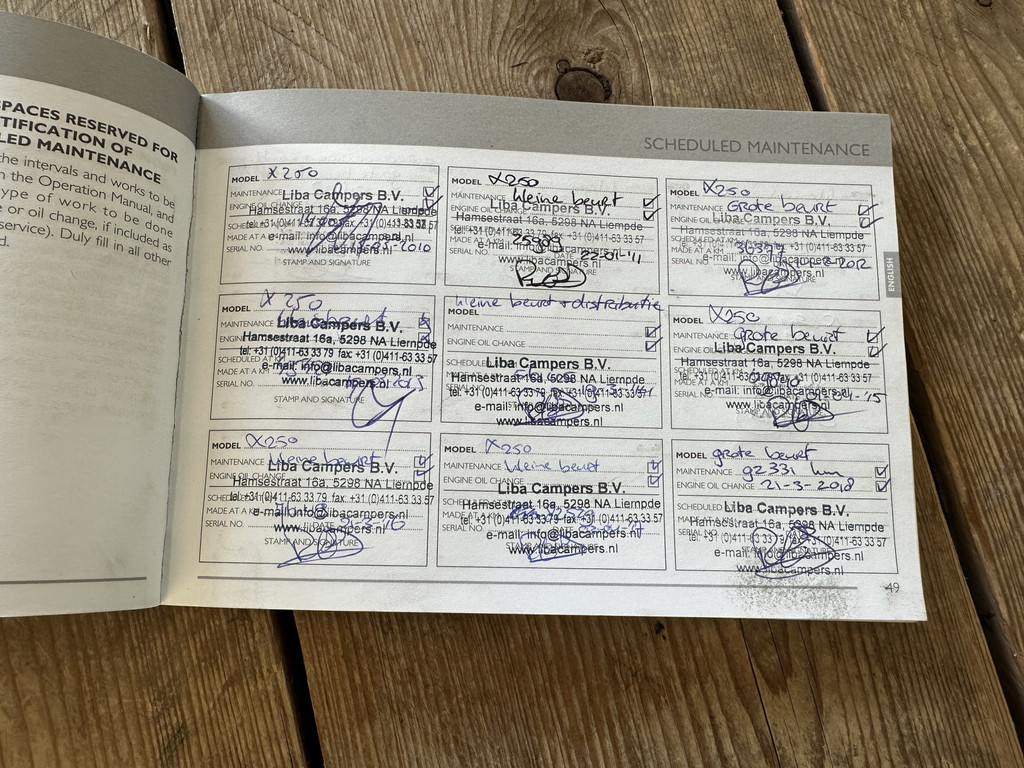 SPACES RESERVED FOR
TIFICATION OF
LED MAINTENANCE
the intervals and works to be
n the Operation Manual, and
ype of work to be done
e or oil change, if included as
service). Duly fill in all other
d.
SCHEDULED MAINTENANCE
MODEL X250
MAINTENANCE
ENGINE OIL CHANGE
Liba Campers B.V.
Hamsestraat 16a, 5298 NA Liempde
tel: +31 (0)411-63 33 79 fax: +31 (0)411-63 33 57
MADE AT A KM
e-mail: info@libacampers.nl
2010
SERIAL NO.
www.libacampers.nl
STAMP AND SIGNATURE
MODEL X250
MAINTENANCE kleine beurt
ENGINE OIL CHANGE
Liba Campers B.V.
Hamsestraat 16a, 5298 NA Liempde
tel: +31 (0)411-63 33 79 fax: +31 (0)411-63 33 57
MADE AT A KM
e-mail: info@libacampers.nl
SERIAL NO.
www.libacampers.nl
STAMP AND SIGNATURE
MODEL X250
MAINTENANCE Grote beurt
ENGINE OIL
Liba Campers B.V.
Hamsestraat 16a, 5298 NA Liempde
tel: +31 (0)411-63 33 79 fax: +31 (0)411-63 33 57
MADE AT A KM
e-mail: info@libacampers.nl
2012
SERIAL NO.
www.libacampers.nl
ENGLISH
X250
MAINTENANCE
Liba Campers B.V.
Hamsestraat 16a, 5298 NA Liempde
tel: +31 (0)411-63 33 79 fax: +31 (0)411-63 33 57
SCHEDULED AT
MADE AT A KM
e-mail: info@libacampers.nl
SERIAL NO.
www.libacampers.nl
STAMP AND SIGNATURE
kleine beurt + distributie
MODEL
MAINTENANCE
ENGINE OIL CHANGE
SCHEDULED
Liba Campers B.V.
Hamsestraat 16a, 5298 NA Liempde
tel: +31 (0)411-63 33 79 fax: +31 (0)411-63 33 57
e-mail: info@libacampers.nl
www.libacampers.nl
MODEL X250
MAINTENANCE Grote beurt
ENGINE OIL
Liba Campers B.V.
Hamsestraat 16a, 5298 NA Liempde
tel: +31 (0)411-63 33 79 fax: +31 (0)411-63 33 57
MADE AT A KM
e-mail: info@libacampers.nl
SERIAL NO.
www.libacampers.nl
MODEL X250
MAINTENANCE kleine beurt
ENGINE OIL CHANGE
Liba Campers B.V.
Hamsestraat 16a, 5298 NA Liempde
tel: +31 (0)411-63 33 79 fax: +31 (0)411-63 33 57
MADE AT A KM
e-mail: info@libacampers.nl
SERIAL NO.
www.libacampers.nl
STAMP AND SIGNATURE
MODEL X250
MAINTENANCE kleine beurt
ENGINE OIL CHANGE
Liba Campers B.V.
Hamsestraat 16a, 5298 NA Liempde
tel: +31 (0)411-63 33 79 fax: +31 (0)411-63 33 57
SERIAL NO.
e-mail: info@libacampers.nl
www.libacampers.nl
MODEL grote beurt
MAINTENANCE 92331 km
ENGINE OIL CHANGE 21-3-2018
SCHEDULED
Liba Campers B.V.
Hamsestraat 16a, 5298 NA Liempde
tel: +31 (0)411-63 33 79 fax: +31 (0)411-63 33 57
e-mail: info@libacampers.nl
www.libacampers.nl
49